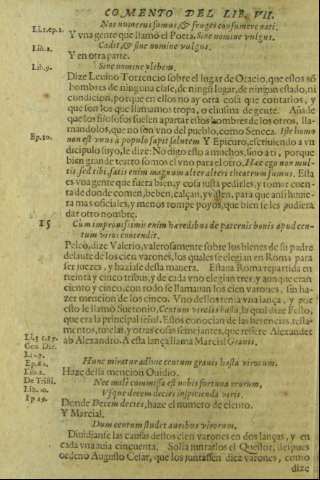 COMENTO DEL LIB. VII.
Li.1.ep.2. Nos numerus sumus, & fruges consumere nati.
Y vna gente que llamó el Poeta, Sine nomine vulgus.
Lib.2. Cadit, & sine nomine vulgus.
Y en otra parte.
Lib.9. Sine nomine plebem.
Dize Leuino Torrencio sobre el lugar de Oracio, que estos nõ
hombres de ninguna clase, de ningũ lugar, de ningun estado, ni
condicion, porque en ellos no ay otra cosa que contarlos, y
que son los que llamamos tropa, o chusma de gente. Aũ de
que los filosofos suelen apartar estos nombres de los otros, lla-
mandolos, que no son vno del pueblo, como Seneca. Iste homo
Ep.10. non est vnus a populo sapit salutem Y Epicuro, escriuiendo a vn
dicipulo suyo, le dize: No digo esto a muchos, sino a ti, porque
bien grande teatro somos el vno para el otro. Hæc ego non mul-
tis, sed tibi, satis enim magnum alter alteri theatrum sumus. Esta
es vna gente que fuera bien, y cosa justa pedirles, y tomar cuen-
ta de donde comen, beben, calçan, y visten, para que ansi huuie-
ra mas oficiales, y menos rompe poyos, que bien se les podiera
dar otro nombre.
15 Cum improuissimis enim hæredibus de paternis bonis apud cen-
tum viros contendit.
Peleò, dize Valerio, valerosamente sobre los bienes de su padre
delante de los cien varones, los quales se elegian en Roma para
ser juezes, y haziase desta manera. Estaua Roma repartida en
treinta y cinco tribus, y de cada vno elegian tres, y aunque eran
ciento y cinco, con todo se llamauan los cien varones, sin ha-
zer mencion de los cinco. Vno dellos tenia vna lança, y por
esto le llamò Suetonio, Centum viralis hasta, la qual dize Festo,
que era la principal señal. Estos conocian de las herencias, testa-
mentos, tutelas, y otras cosas semejantes, que refiere Alexander
ab Alexandro. A esta lança llama Marcial Grauis.
Hunc miratur adhuc centum grauis hasta virorum.
Haze desta mencion Ouidio.
De Trist. Nec male commissa est nobis fortuna reorum,
Vsque decem decies inspicienda viris.
Donde Decem decies, haze el numero de ciento.
Y Marcial.
Dum centum studet auribus virorum.
Diuidianse las causas destos cien varones en dos lanças, y en
cada vna auia cincuenta. Solia juntarlos el Questor, despues
ordenò Augusto Cesar, que los juntassen diez varones, como
dize